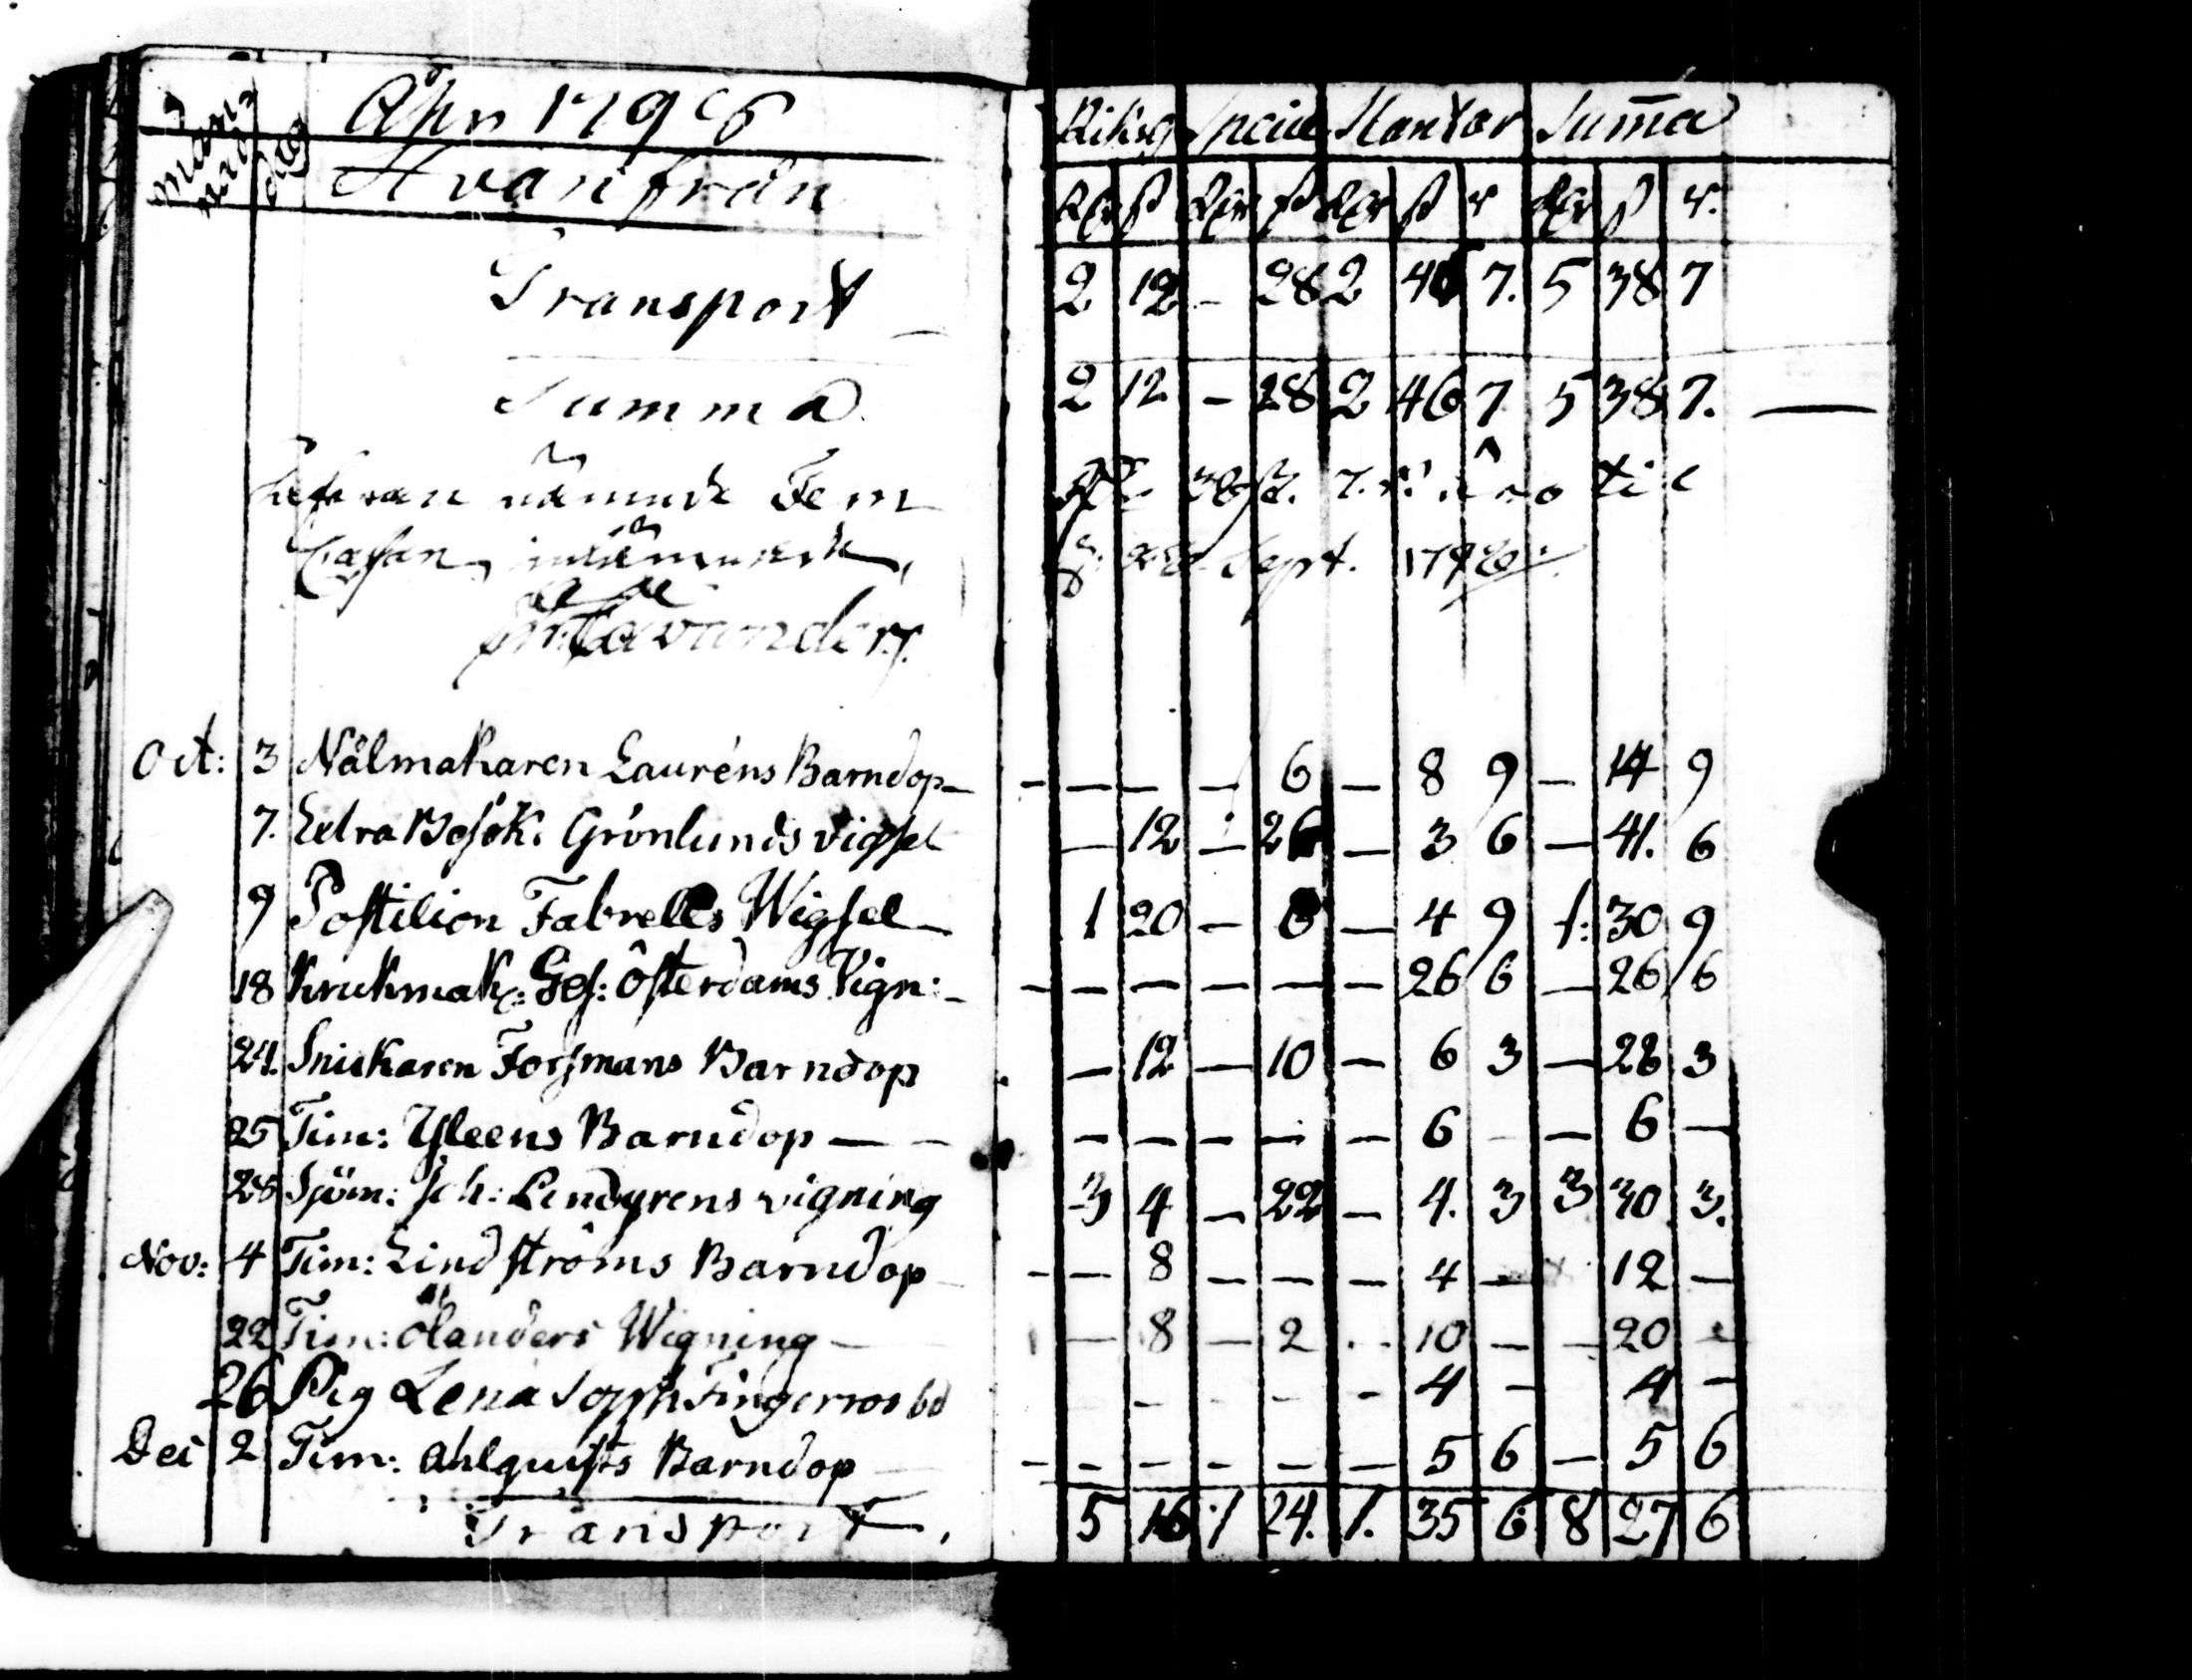 Månad dag Åhr 1796 Riksg Specie Slantar Sum̄a
Hvarifrån Rdr ß Rdr ß Rdr ß r Rdr ß r.
Transport – 2 12 – 28 2 46 7. 5 38 7
Summa 2 12 – 28 2 46 7 5 38 7. —
nämnde Fem 38 ß. 7. r. äro til
Cassan Sept. 1796
Oct: 3 Nålmakaren Lauréns Barndop – – – – – 6 – 8 9 – 14 9
7. Extra Besök: Grönlunds vigsel – 12 – 26 – 3 6 – 41. 6
9 Postilion Fabrells Wigsel – 1 20 – 6 – 4 9 1: 30 9
18 Krukmak: Ges: Österdams Vign: – – – – – – – 26 6 – 26 6
24. Snickaren Forsmans Barndop – 12 – 10 – 6 3 – 28 3
25 Tim: Yleens Barndop – – – – – – – 6 – – 6 –
28 Sjöm: Joh: Lindgrens vigning 3 4 – 22 – 4. 3 3 30 3.
Nov: 4 Tim: Lindströms Barndop – – – 8 – – – 4 – 12 –
22 Tim: Ölanders Wigning – – 8 – 2 – 10 – – 20 –
26 Pig Lena Soph Fingerroos bd – – – – 4 – 4 –
Dec 2 Tim: Ahlquists Barndop – – – – – – – 5 6 – 5 6
Transport 5 16 1 24. 1. 35 6 8 27 6